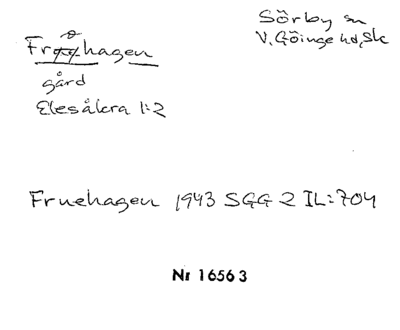 Sörby sn
V. Göinge hd, Sk
Frøhagen
gård
Elesåkra 1:2
Fruehagen 1943 SGG 2 IL:704
Nr 16563